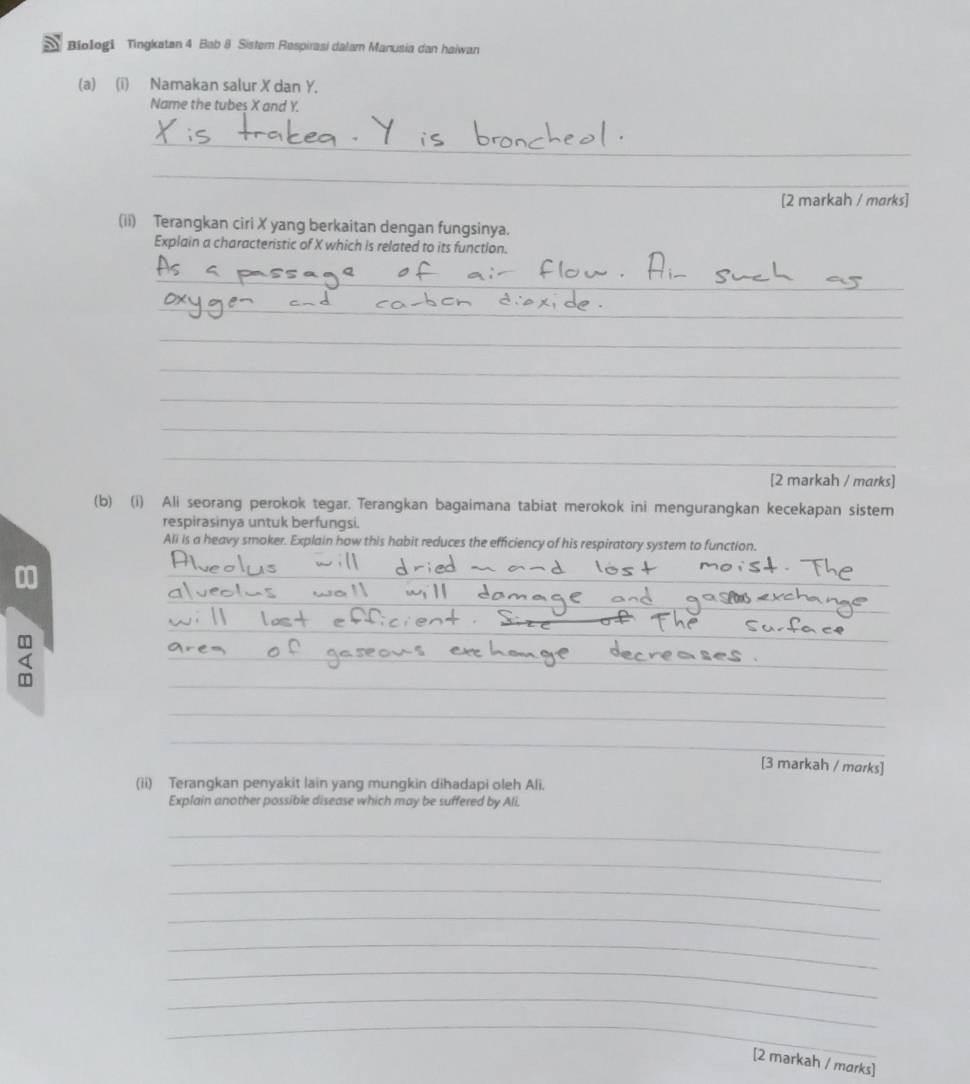 Biologi Tingkatan 4 Bab 8 Sistem Respirasi dalam Manusia dan haiwan
(a) (i) Namakan salur X dan Y.
Name the tubes X and Y.
X is trakea. Y is broncheol.
[2 markah / marks]
(ii) Terangkan ciri X yang berkaitan dengan fungsinya.
Explain a characteristic of X which is related to its function.
As a passage of air flow. Air such as
oxygen and carbon dioxide.
[2 markah / marks]
(b) (i) Ali seorang perokok tegar. Terangkan bagaimana tabiat merokok ini mengurangkan kecekapan sistem
respirasinya untuk berfungsi.
Ali is a heavy smoker. Explain how this habit reduces the efficiency of his respiratory system to function.
Alveolus will dried and lost moist. The
alveolus wall will damage and exchange
will lost efficient. Size of The surface
area of gaseous exchange decreases.
[3 markah / marks]
(ii) Terangkan penyakit lain yang mungkin dihadapi oleh Ali.
Explain another possible disease which may be suffered by Ali.
[2 markah / marks]
BAB 8